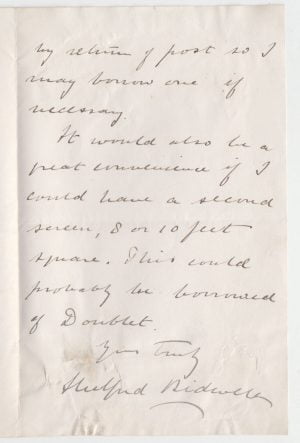 by return of post so I
may borrow one if
necessary.
It would also be a
great convenience if I
could have a second
screen, 8 or 10 feet
square. This could
probably be borrowed
of Doublet.
Yours truly
Shelford Bidwell